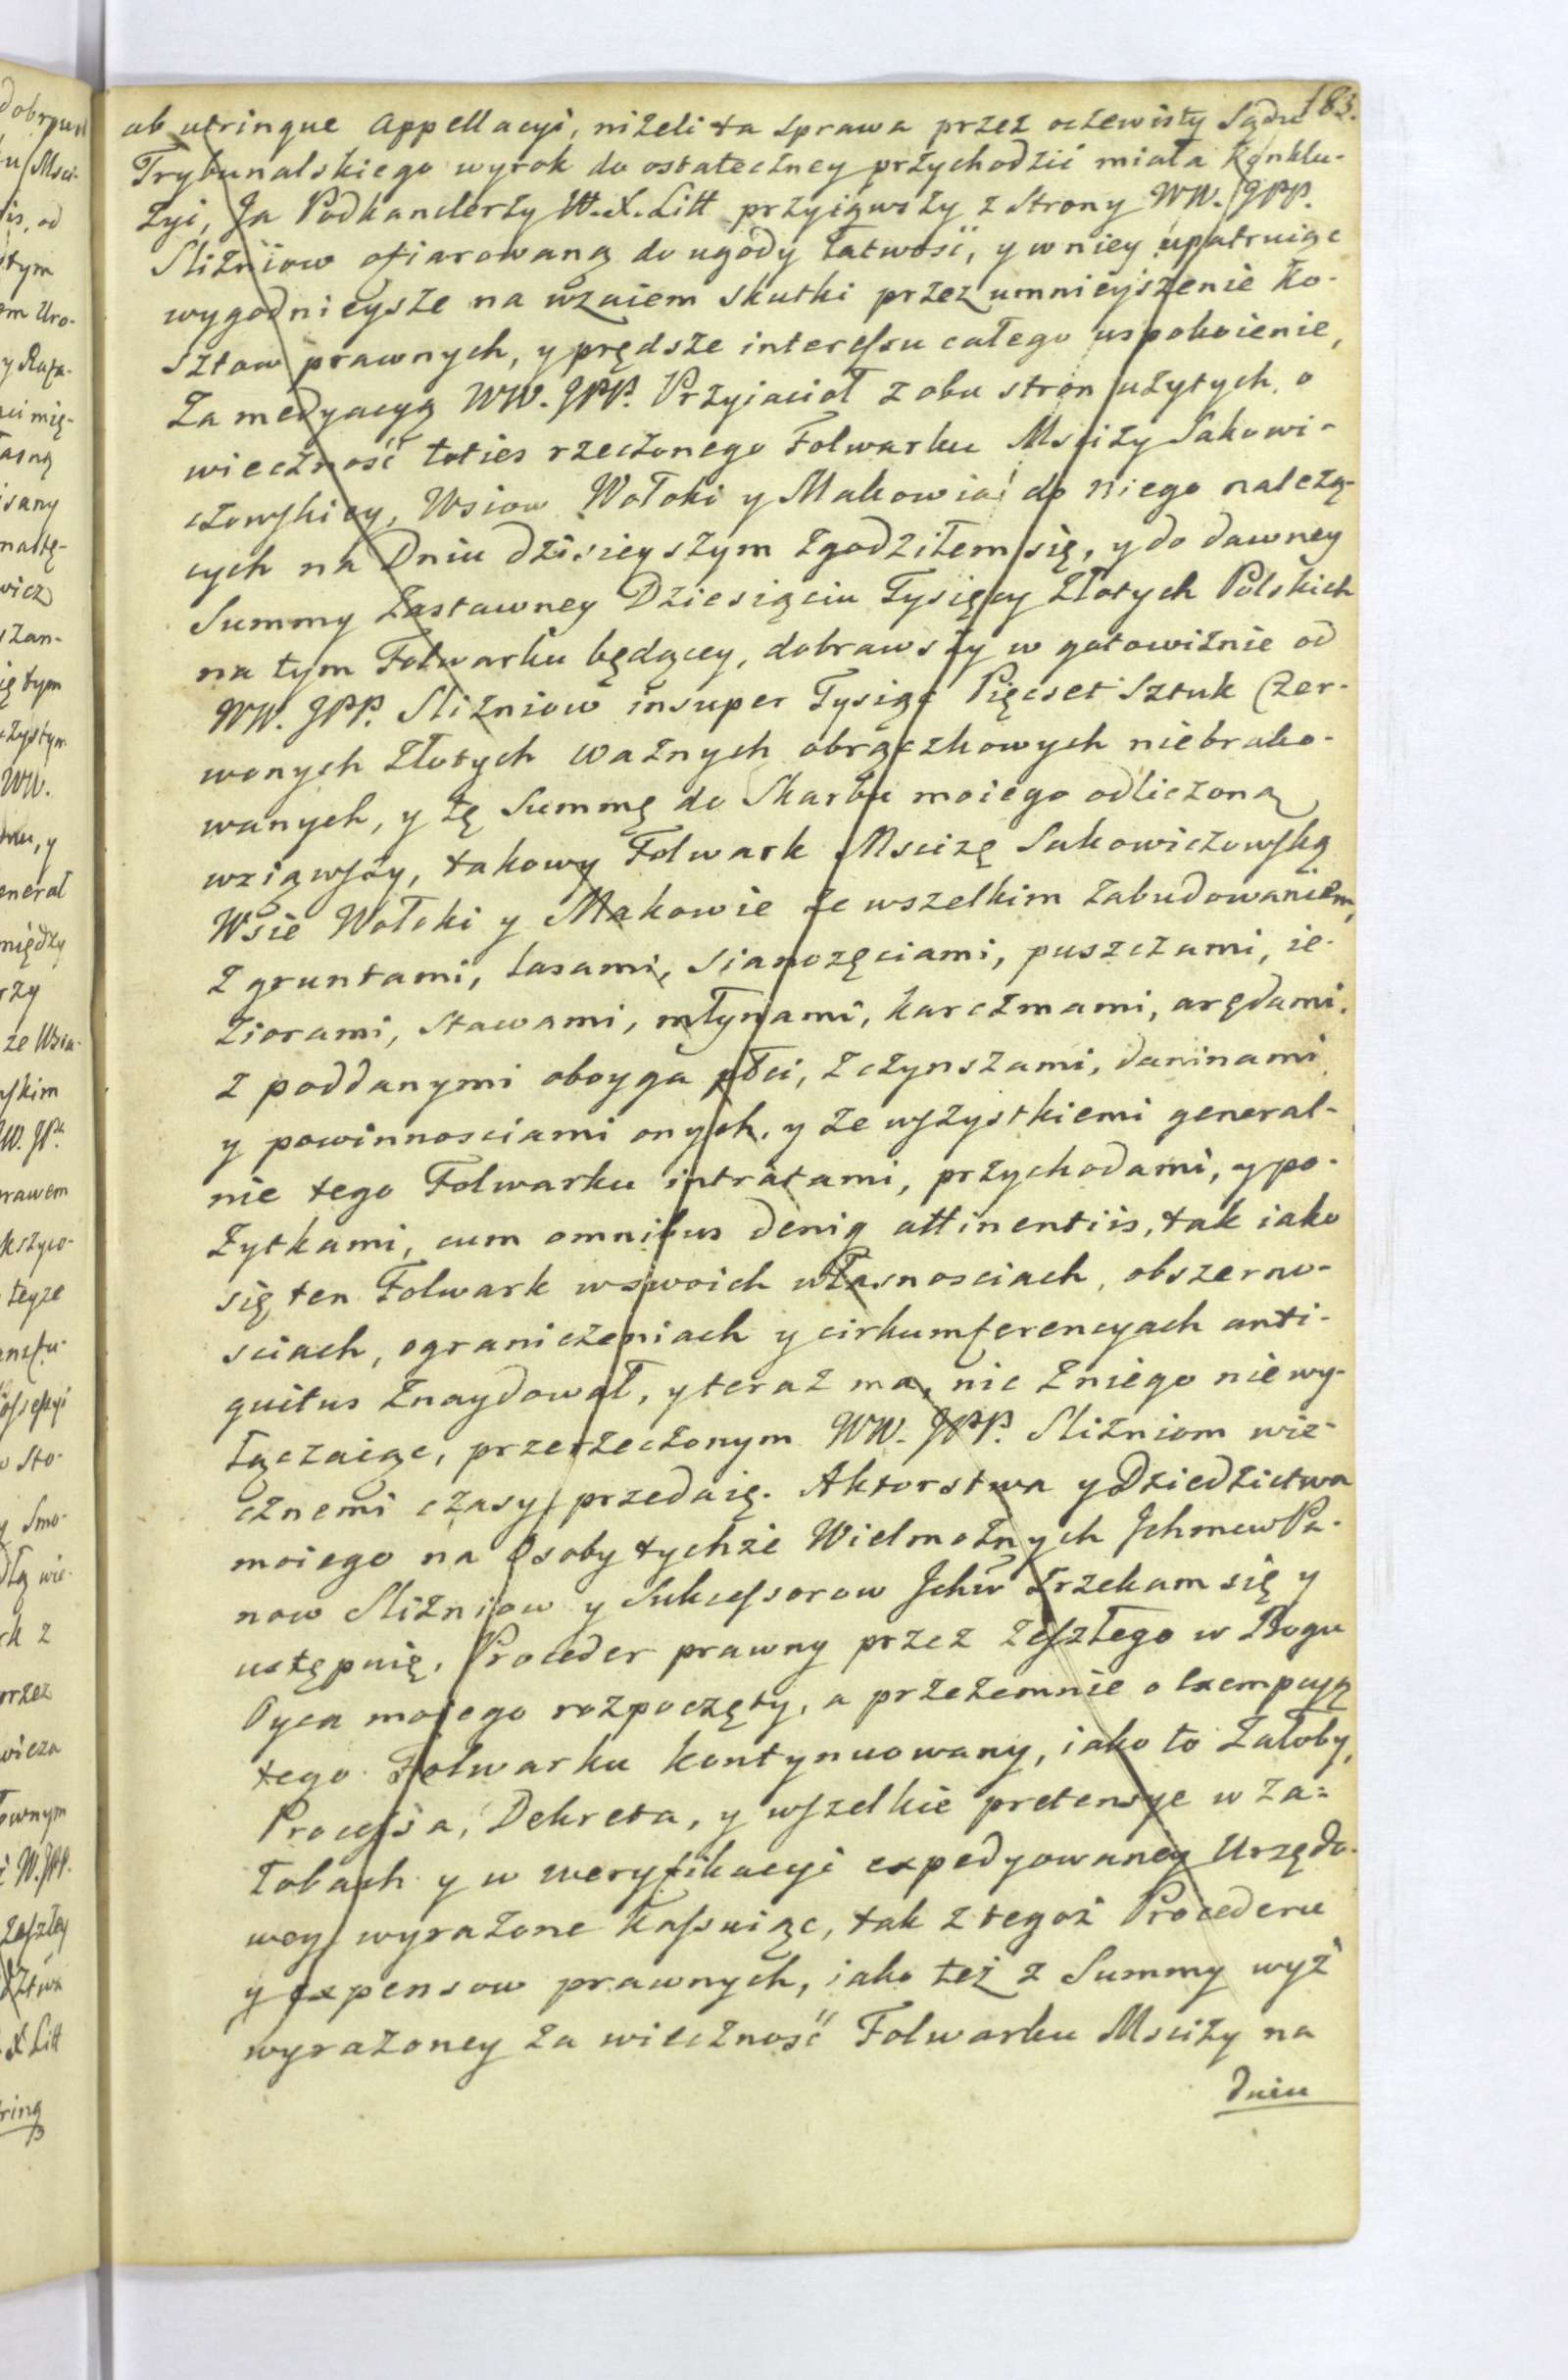 183.
ab utrinque Appellacyi, niżeli ta sprawa przez oczewisty Sądu
Trybunalskiego wyrok do ostateczney przychodzić miała Konklu-
zyi, Ja Podkanclerzy W.X.Litt przyiąwszy z Strony WW. JPP.
Sliźniow ofiarowaną do ugody łatwość, y w niey upatruiąc
wygodnieysze na wzaiem skutki przez umnieyszenie Ko-
sztow prawnych, y prędsze interessu całego uspokoienie,
Za medyacyą WW. JPP. Przyiacioł z obu stron użytych, o
wieczność toties rzeczonego Folwarku Mscizy Sakowi-
czowskiey, Wsiow Wołoki y Makowia do niego należą-
cych na Dniu dzisieyszym zgodziłem się, y do dawney
Summy Zastawney Dziesiąciu Tysięcy Złotych Polskich
na tym Folwarku będącey, dobrawszy w gotowiźnie od
WW. JPP. Sliźniow insuper Tysiąc Pięcset Sztuk Czer-
wonych Złotych ważnych obrączkowych niebrako-
wanych, y tę Summę do Skarbu moiego odliczoną
wziąwszy, takowy Folwark Mscizę Sakowiczowską
Wsie Wołoki y Makowie ze wszelkim zabudowaniem,
z gruntami, Lasami, sianożęciami, puszczami, ie-
ziorami, stawami, młynami, karczmami, arędami,
z poddanymi oboyga płci, z czynszami, daninami
y powinnosciami onych, y ze wszystkiemi general-
nie tego Folwarku intratami, przychodami, y po-
żytkami, cum omnibus deniq attinentiis, tak iako
się ten Folwark w swoich własnosciach, obszerno-
sciach, ograniczeniach y cirkumferencyach anti-
quitus znaydował, y teraz ma, nic z niego nie wy-
łączaiąc, przerzeczonym WW. JPP. Sliźniom wie-
cznemi czasy przedaię. Aktorstwa y Dziedzictwa
moiego na Osoby tychże Wielmożnych Jchmcw Pa-
now Sliźniow y Sukcessorow Jchw zrzekam się y
ustępuię. Proceder prawny przez zeszłego w Bogu
Oyca moiego rozpoczęty, a przezemnie o exempcyą
tego Folwarku kontynuowany, iako to Załoby,
Processa, Dekreta, y wszelkie pretensye w Za=
łobach y w weryfikacyi expedyowaney Urzędo-
wey wyrażone kassuiąc, tak z tegoż Procederu
y expensow prawnych, iako też z Summy wyż
wyrażoney za wieczność Folwarku Mscizy na
dniu